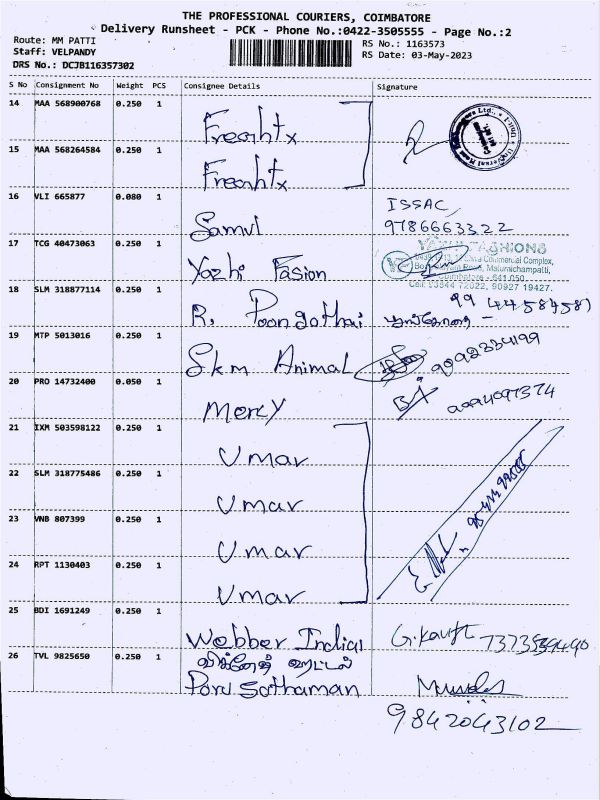 THE PROFESSIONAL COURIERS, COIMBATORE
Delivery Runsheet - PCK - Phone No.:0422-3505555 - Page No.:2
Route: MM PATTI
RS No.: 1163573
Staff: VELPANDY
RS Date: 03-May-2023
DRS No.: DCJB116357302
S No Consignment No Weight PCS Consignee Details Signature
14 MAA 568900768 0.250 1 Freahtx
15 MAA 568264584 0.250 1 Freahtx
16 VLI 665877 0.080 1 Samvl ISSAC
9786663322
17 TCG 40473063 0.250 1 Yazhi Fasion
YAZHI FASHIONS
Commercial Complex,
Maturaichampatti,
Coimbatore - 641 050.
Cell: 72022, 90927 19427.
18 SLM 318877114 0.250 1 R. Poongothai பூங்கோதை
19 MTP 5013016 0.250 1 Skm Animal 9092334199
20 PRO 14732400 0.050 1 Mercy
21 IXM 503598122 0.250 1 Umar
22 SLM 318775486 0.250 1 Umar
23 VNB 807399 0.250 1 Umar
24 RPT 1130403 0.250 1 Umar
25 BDI 1691249 0.250 1 Webber India
26 TVL 9825650 0.250 1 Poru Sothaman
9842043102